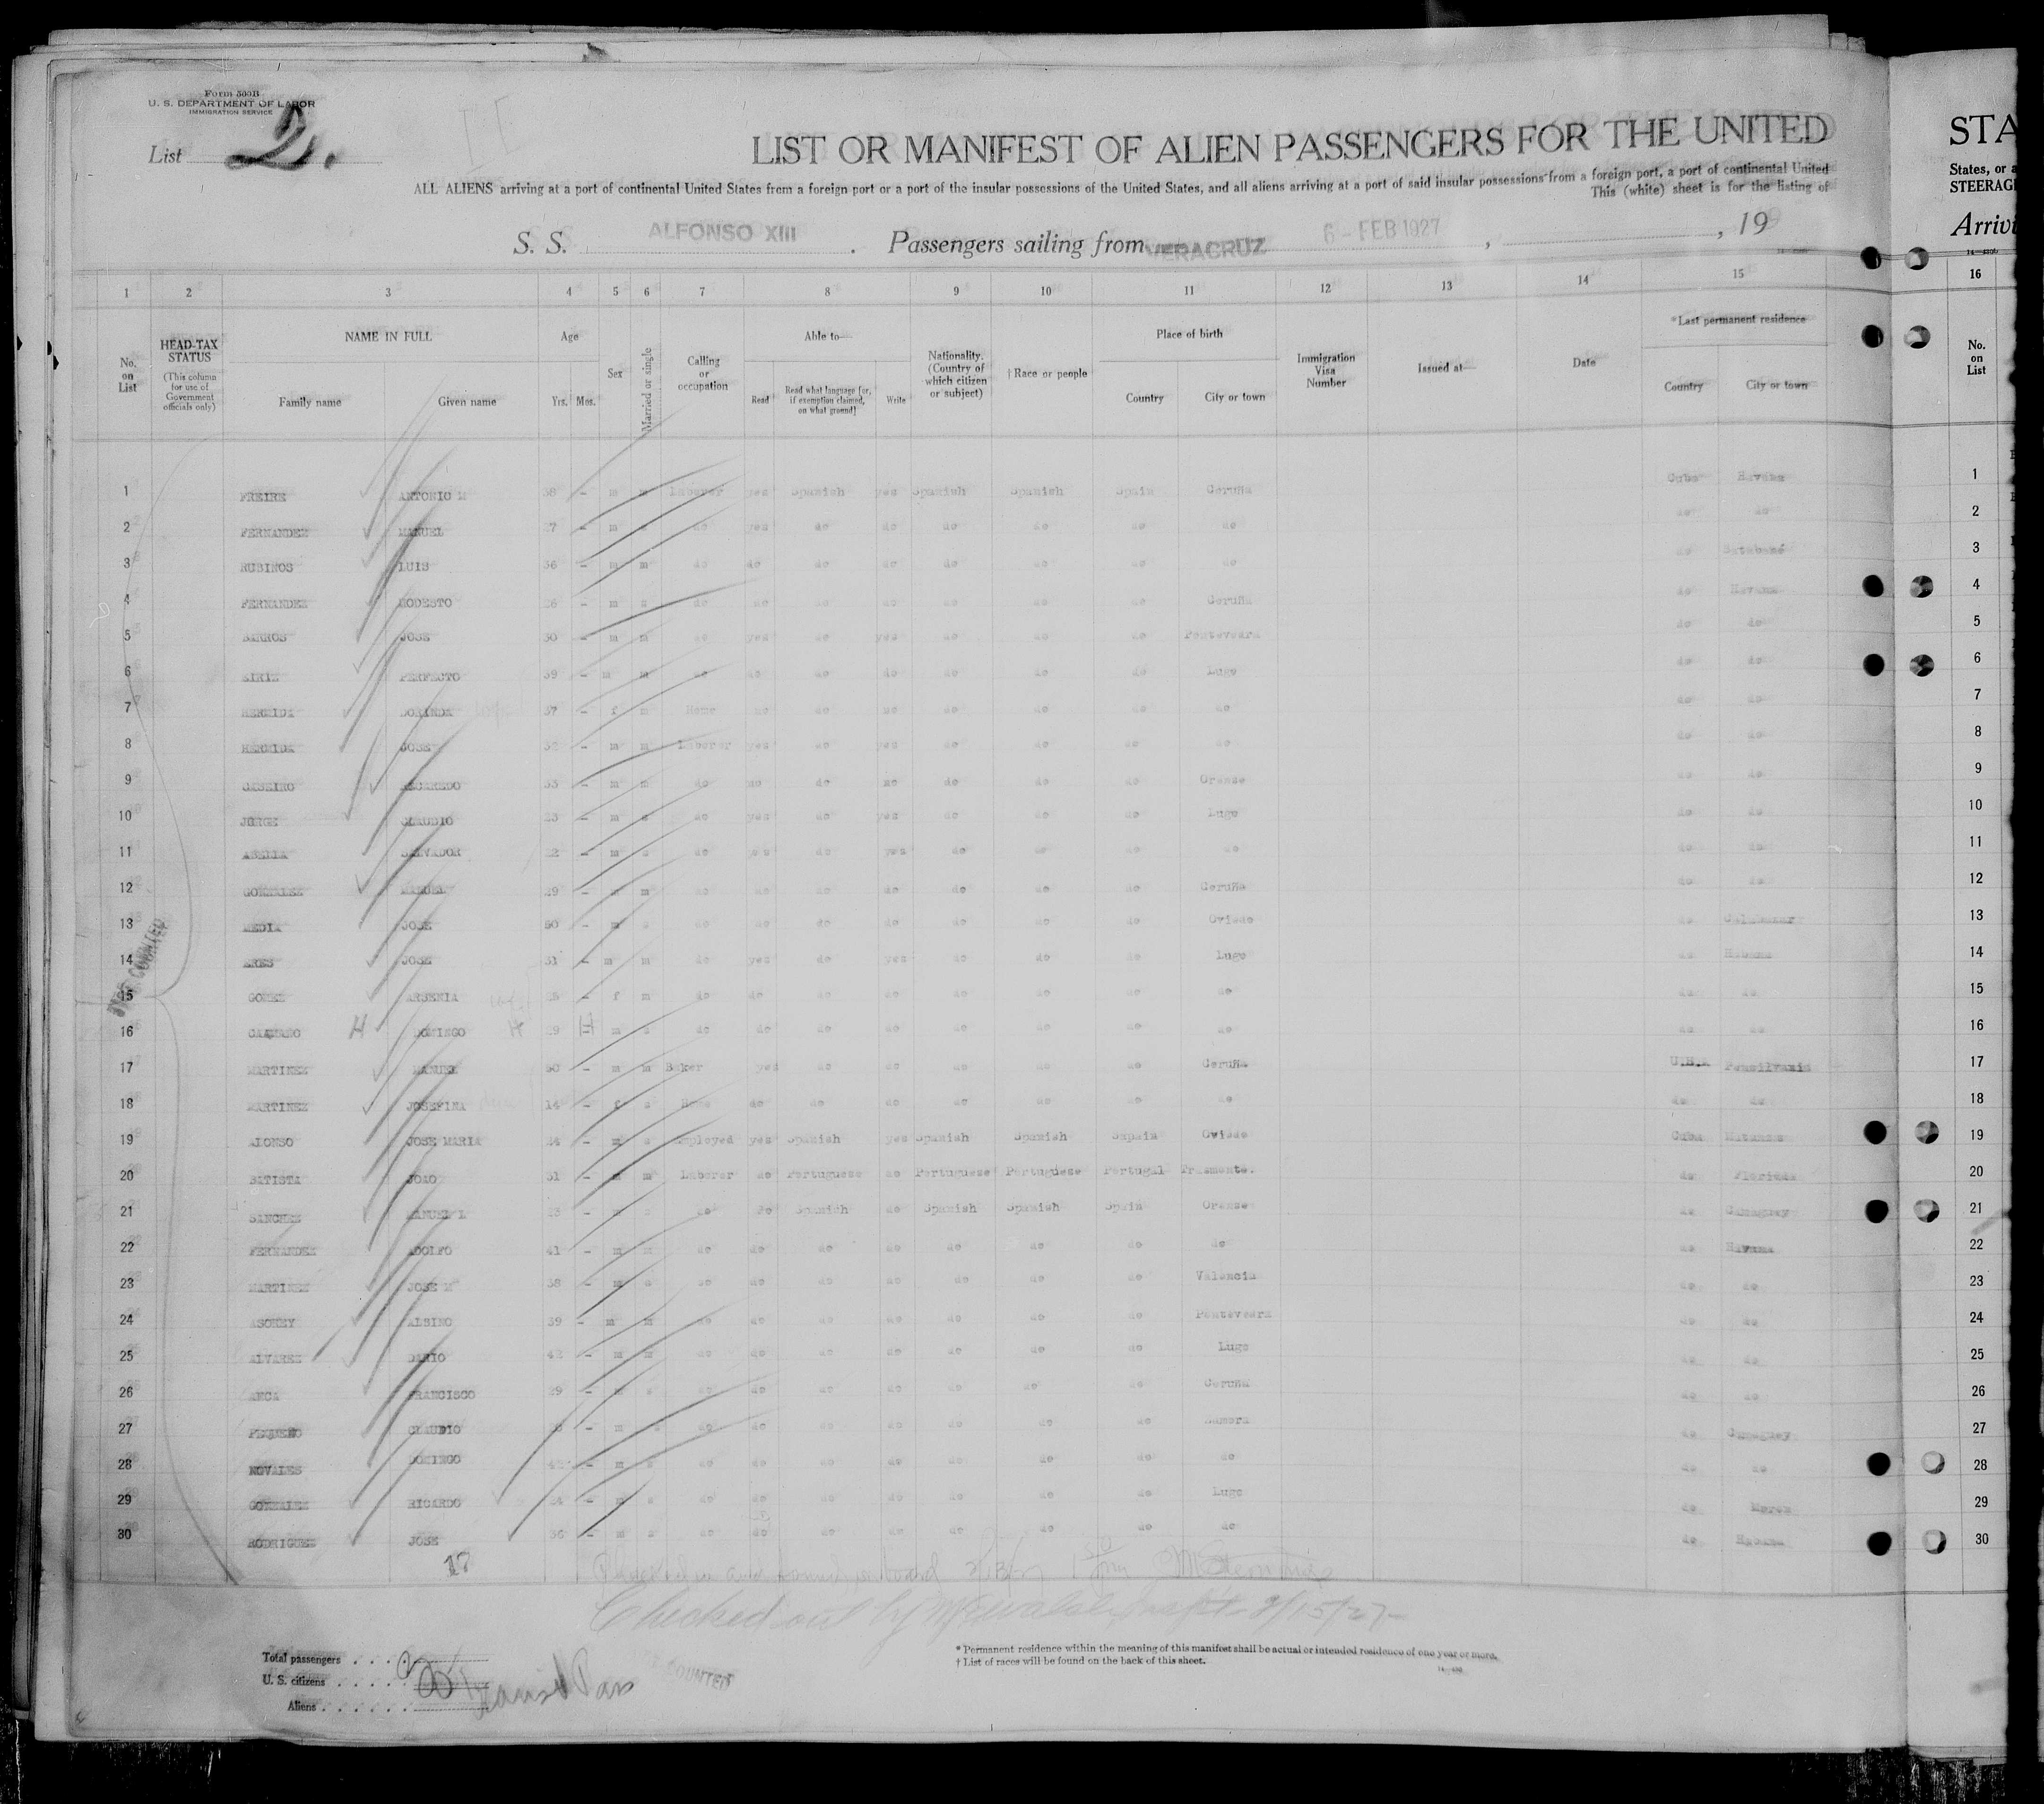 Form 500B
U. S. DEPARTMENT OF LABOR
IMMIGRATION SERVICE
List 2.
LIST OR MANIFEST OF ALIEN PASSENGERS FOR THE UNITED
ALL ALIENS arriving at a port of continental United States from a foreign port or a port of the insular possessions of the United States, and all aliens arriving at a port of said insular possessions from a foreign port, a port of continental United
This (white) sheet is for the listing of
S. S. ALFONSO XIII . Passengers sailing from VERACRUZ 6 - FEB 1927 , , 19
1 2 3 4 5 6 7 8 9 10 11 12 13 14 15
No. on List HEAD-TAX STATUS (This column for use of Government officials only) NAME IN FULL Family name Given name Age Yrs. Mos. Sex Married or single Calling or occupation Able to— Read Read what language [or, if exemption claimed, on what ground] Write Nationality. (Country of which citizen or subject) † Race or people Place of birth Country City or town Immigration Visa Number Issued at— Date *Last permanent residence Country City or town
1 FREIRE ANTONIO M 38 - m m Laborer yes Spanish yes Spanish Spanish Spain Coruña Cuba Havana
2 FERNANDEZ MANUEL 27 - m s do yes do do do do do do do do
3 RUBINOS LUIS 36 - m m do do do do do do do do do
4 FERNANDEZ MODESTO 26 - m s do do do do do do do Coruña do Havana
5 BARROS JOSE 30 - m m do yes do yes do do do Pontevedra do do
6 PERFECTO 39 - m m do do do do do do do Lugo do do
7 HERMIDA DORINDA 37 - f m Home no do no do do do do do do
8 HERMIDA JOSE 32 - m m Laborer yes do yes do do do do do do
9 33 - m m do no do no do do do Orense do do
10 JORGE CLAUDIO 23 - m s do yes do yes do do do Lugo do do
11 SALVADOR 22 - m s do yes do yes do do do do do do
12 GONZALEZ MANUEL 29 - m m do do do do do do do Coruña do do
13 MEDIA JOSE 50 - m s do do do do do do do Oviedo do
14 ARES JOSE 31 - m m do yes do yes do do do Lugo do Habana
15 GOMEZ ARSENIA 28 - f m do do do do do do do do do do
16 H DOMINGO H 29 H m s do do do do do do do do do do
17 MARTINEZ MANUEL 50 - m m Baker yes do do do do do Coruña U.S.A Pensilvania
18 MARTINEZ JOSEFINA 14 - f s Home do do do do do do do do do
19 ALONSO JOSE MARIA 24 - m s Employed yes Spanish yes Spanish Spanish Sapain Oviedo Cuba Matanzas
20 BATISTA JOAO 31 - m m Laborer do Portuguese do Portuguese Portuguese Portugal Trasmonte. do Florida
21 SANCHEZ MANUEL 23 - m s do do Spanish do Spanish Spanish Spain Orense do Camaguey
22 FERNANDEZ ADOLFO 41 - m m do do do do do do do do do Havana
23 MARTINEZ JOSE M 38 - m s do do do do do do do Valencia do do
24 ASOREY ALBINO 39 - m m do do do do do do do Pontevedra do do
25 ALVAREZ DARIO 42 - m m do do do do do do do Lugo do do
26 ANCA FRANCISCO 29 - m s do do do do do do do Coruña do do
27 PEQUENO CLAUDIO - m s do do do do do do do Zamora do Camaguey
28 NOVALES DOMINGO 42 - m s do do do do do do do do do do
29 GONZALEZ RICARDO 24 - m s do do do do do do do Lugo do
30 RODRIGUEZ JOSE 36 - m s do do do do do do do do do Habana
17
Checked out by Insptr 2/15/27
Total passengers
U. S. citizens
Aliens
* Permanent residence within the meaning of this manifest shall be actual or intended residence of one year or more.
† List of races will be found on the back of this sheet.
STA
States, or a
STEERAG
Arrivi
16
No. on List
1
2
3
4
5
6
7
8
9
10
11
12
13
14
15
16
17
18
19
20
21
22
23
24
25
26
27
28
29
30